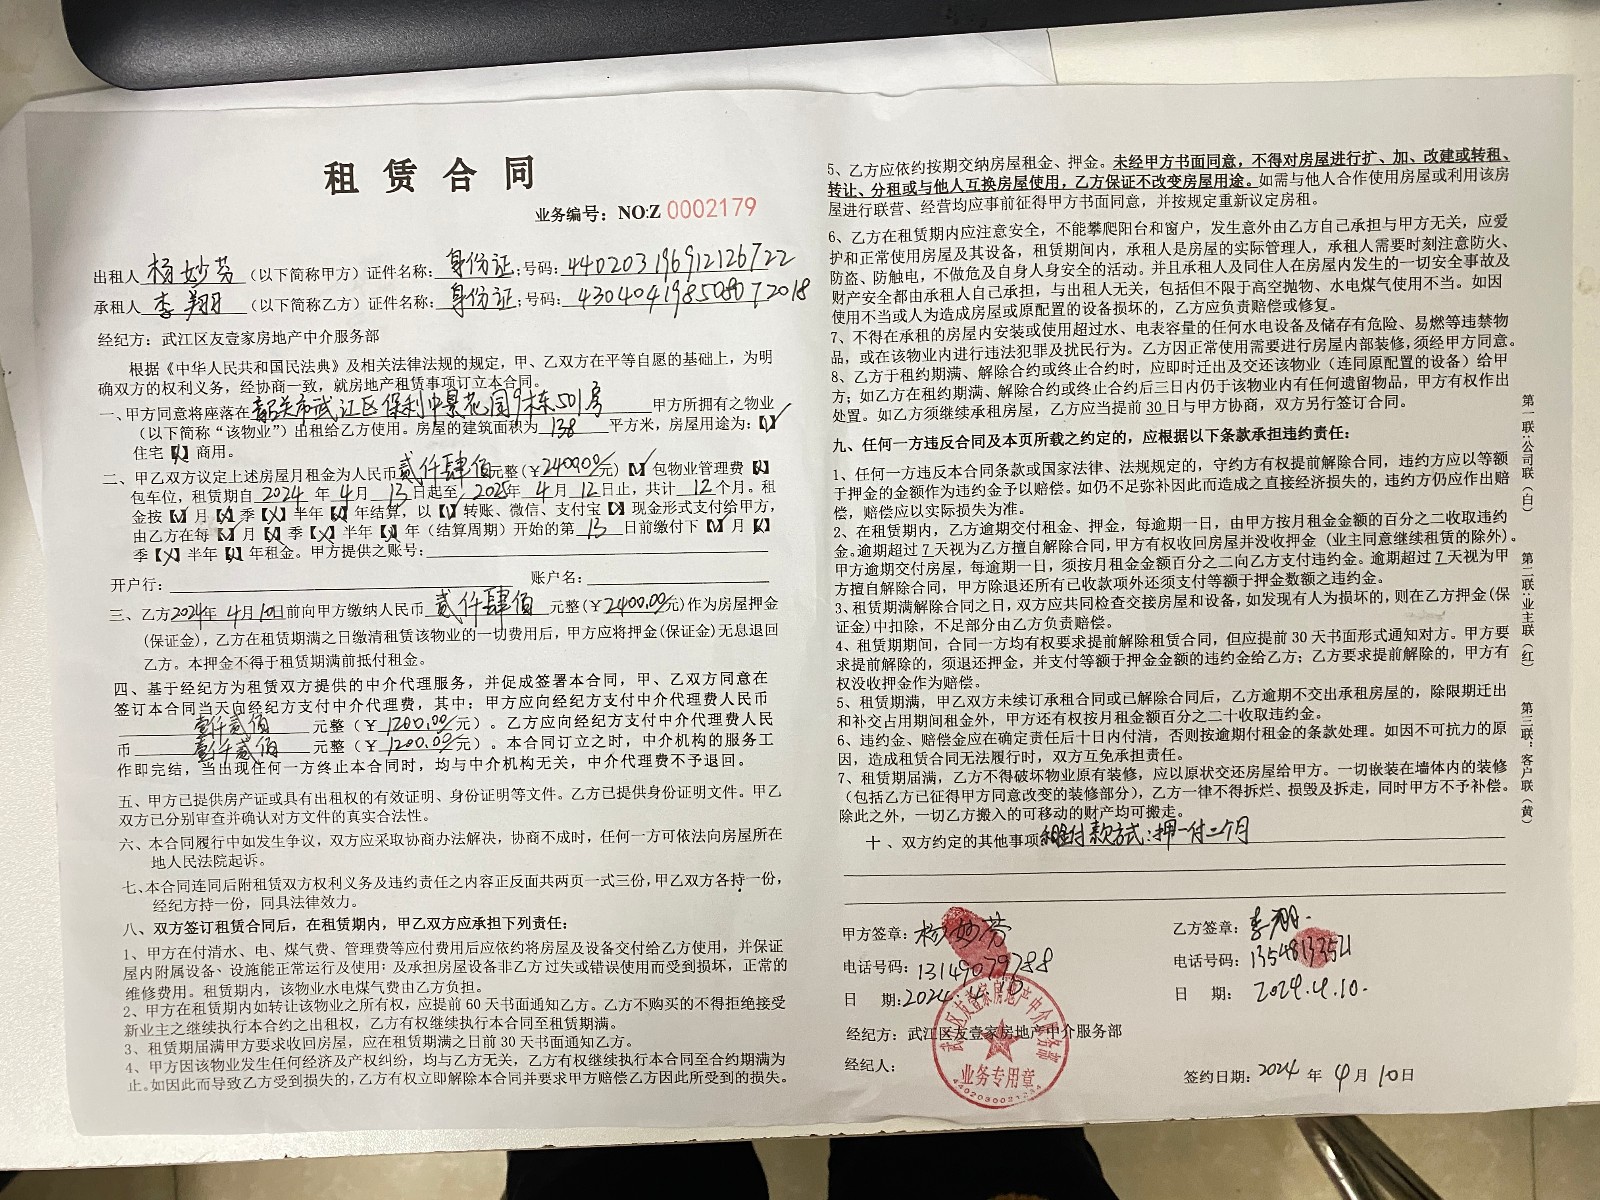 租赁合同
业务编号：NO:Z 0002179
出租人 杨妙芬 （以下简称甲方）证件名称：身份证；号码：440203196912126722
承租人 李翔 （以下简称乙方）证件名称：身份证；号码：
经纪方：武江区友壹家房地产中介服务部
根据《中华人民共和国民法典》及相关法律法规的规定，甲、乙双方在平等自愿的基础上，为明
确双方的权利义务，经协商一致，就房地产租赁事项订立本合同。
一、甲方同意将座落在 韶关市武江区保利中景花园9栋501房 甲方所拥有之物业
（以下简称“该物业”）出租给乙方使用。房屋的建筑面积为 138 平方米，房屋用途为：【√】
住宅【X】商用。
二、甲乙双方议定上述房屋月租金为人民币 贰仟肆佰 元整（¥2400.00/元）【√】包物业管理费【X】
包车位，租赁期自 2024 年 4 月 13 日起至 2025 年 4 月 12 日止，共计 12 个月。租
金按【】月【】季【X】半年【】年结算，以【】转账、微信、支付宝【】现金形式支付给甲方，
由乙方在每【】月【】季【X】半年【】年（结算周期）开始的第 13 日前缴付下【】月【】
季【X】半年【】年租金。甲方提供之账号：
开户行： 账户名：
三、乙方 2024年 4月10日前向甲方缴纳人民币 贰仟肆佰 元整（¥2400.00/元）作为房屋押金
（保证金），乙方在租赁期满之日缴清租赁该物业的一切费用后，甲方应将押金（保证金）无息退回
乙方。本押金不得于租赁期满前抵付租金。
四、基于经纪方为租赁双方提供的中介代理服务，并促成签署本合同，甲、乙双方同意在
签订本合同当天向经纪方支付中介代理费，其中：甲方应向经纪方支付中介代理费人民币
壹仟贰佰 元整（¥ 1200.00/元）。乙方应向经纪方支付中介代理费人民
币 壹仟贰佰 元整（¥ 1200.00/元）。本合同订立之时，中介机构的服务工
作即完结，当出现任何一方终止本合同时，均与中介机构无关，中介代理费不予退回。
五、甲方已提供房产证或具有出租权的有效证明、身份证明等文件。乙方已提供身份证明文件。甲乙
双方已分别审查并确认对方文件的真实合法性。
六、本合同履行中如发生争议，双方应采取协商办法解决，协商不成时，任何一方可依法向房屋所在
地人民法院起诉。
七、本合同连同后附租赁双方权利义务及违约责任之内容正反面共两页一式三份，甲乙双方各持一份，
经纪方持一份，同具法律效力。
八、双方签订租赁合同后，在租赁期内，甲乙双方应承担下列责任：
1、甲方在付清水、电、煤气费、管理费等应付费用后应依约将房屋及设备交付给乙方使用，并保证
屋内附属设备、设施能正常运行及使用；及承担房屋设备非乙方过失或错误使用而受到损坏，正常的
维修费用。租赁期内，该物业水电煤气费由乙方负担。
2、甲方在租赁期内如转让该物业之所有权，应提前60天书面通知乙方。乙方不购买的不得拒绝接受
新业主之继续执行本合约之出租权，乙方有权继续执行本合同至租赁期满。
3、租赁期届满甲方要求收回房屋，应在租赁期满之日前30天书面通知乙方。
4、甲方因该物业发生任何经济及产权纠纷，均与乙方无关，乙方有权继续执行本合同至合约期满为
止。如因此而导致乙方受到损失的，乙方有权立即解除本合同并要求甲方赔偿乙方因此所受到的损失。
5、乙方应依约按期交纳房屋租金、押金。未经甲方书面同意，不得对房屋进行扩、加、改建或转租、
转让、分租或与他人互换房屋使用，乙方保证不改变房屋用途。如需与他人合作使用房屋或利用该房
屋进行联营、经营均应事前征得甲方书面同意，并按规定重新议定房租。
6、乙方在租赁期内应注意安全，不能攀爬阳台和窗户，发生意外由乙方自己承担与甲方无关，应爱
护和正常使用房屋及其设备，租赁期间内，承租人是房屋的实际管理人，承租人需要时刻注意防火、
防盗、防触电，不做危及自身人身安全的活动。并且承租人及同住人在房屋内发生的一切安全事故及
财产安全都由承租人自己承担，与出租人无关，包括但不限于高空抛物、水电煤气使用不当。如因
使用不当或人为造成房屋或原配置的设备损坏的，乙方应负责赔偿或修复。
7、不得在承租的房屋内安装或使用超过水、电表容量的任何水电设备及储存有危险、易燃等违禁物
品，或在该物业内进行违法犯罪及扰民行为。乙方因正常使用需要进行房屋内部装修，须经甲方同意。
8、乙方于租约期满、解除合约或终止合约时，应即时迁出及交还该物业（连同原配置的设备）给甲
方；如乙方在租约期满、解除合约或终止合约后三日内仍于该物业内有任何遗留物品，甲方有权作出
处置。如乙方须继续承租房屋，乙方应当提前30日与甲方协商，双方另行签订合同。
九、任何一方违反合同及本页所载之约定的，应根据以下条款承担违约责任：
1、任何一方违反本合同条款或国家法律、法规规定的，守约方有权提前解除合同，违约方应以等额
于押金的金额作为违约金予以赔偿。如仍不足弥补因此而造成之直接经济损失的，违约方仍应作出赔
偿，赔偿应以实际损失为准。
2、在租赁期内，乙方逾期交付租金、押金，每逾期一日，由甲方按月租金金额的百分之二收取违约
金。逾期超过7天视为乙方擅自解除合同，甲方有权收回房屋并没收押金（业主同意继续租赁的除外）。
甲方逾期交付房屋，每逾期一日，须按月租金金额百分之二向乙方支付违约金。逾期超过7天视为甲
方擅自解除合同，甲方除退还所有已收款项外还须支付等额于押金数额之违约金。
3、租赁期满解除合同之日，双方应共同检查交接房屋和设备，如发现有人为损坏的，则在乙方押金（保
证金）中扣除，不足部分由乙方负责赔偿。
4、租赁期期间，合同一方均有权要求提前解除租赁合同，但应提前30天书面形式通知对方。甲方要
求提前解除的，须退还押金，并支付等额于押金金额的违约金给乙方；乙方要求提前解除的，甲方有
权没收押金作为赔偿。
5、租赁期满，甲乙双方未续订承租合同或已解除合同后，乙方逾期不交出承租房屋的，除限期迁出
和补交占用期间租金外，甲方还有权按月租金额百分之二十收取违约金。
6、违约金、赔偿金应在确定责任后十日内付清，否则按逾期付租金的条款处理。如因不可抗力的原
因，造成租赁合同无法履行时，双方互免承担责任。
7、租赁期届满，乙方不得破坏物业原有装修，应以原状交还房屋给甲方。一切嵌装在墙体内的装修
（包括乙方已征得甲方同意改变的装修部分），乙方一律不得拆烂、损毁及拆走，同时甲方不予补偿。
除此之外，一切乙方搬入的可移动的财产均可搬走。
十、双方约定的其他事项 租金付款方式：押一付二个月
甲方签章：杨妙芬
电话号码：13149079788
日 期：2024.4.10
乙方签章：李翔.
电话号码：13548133521
日 期：2024.4.10.
经纪方：武江区友壹家房地产中介服务部
经纪人：
签约日期：2024 年 4 月 10 日
武江区友壹家房地产中介服务部
业务专用章
第一联：公司联（白）
第二联：业主联（红）
第三联：客户联（黄）